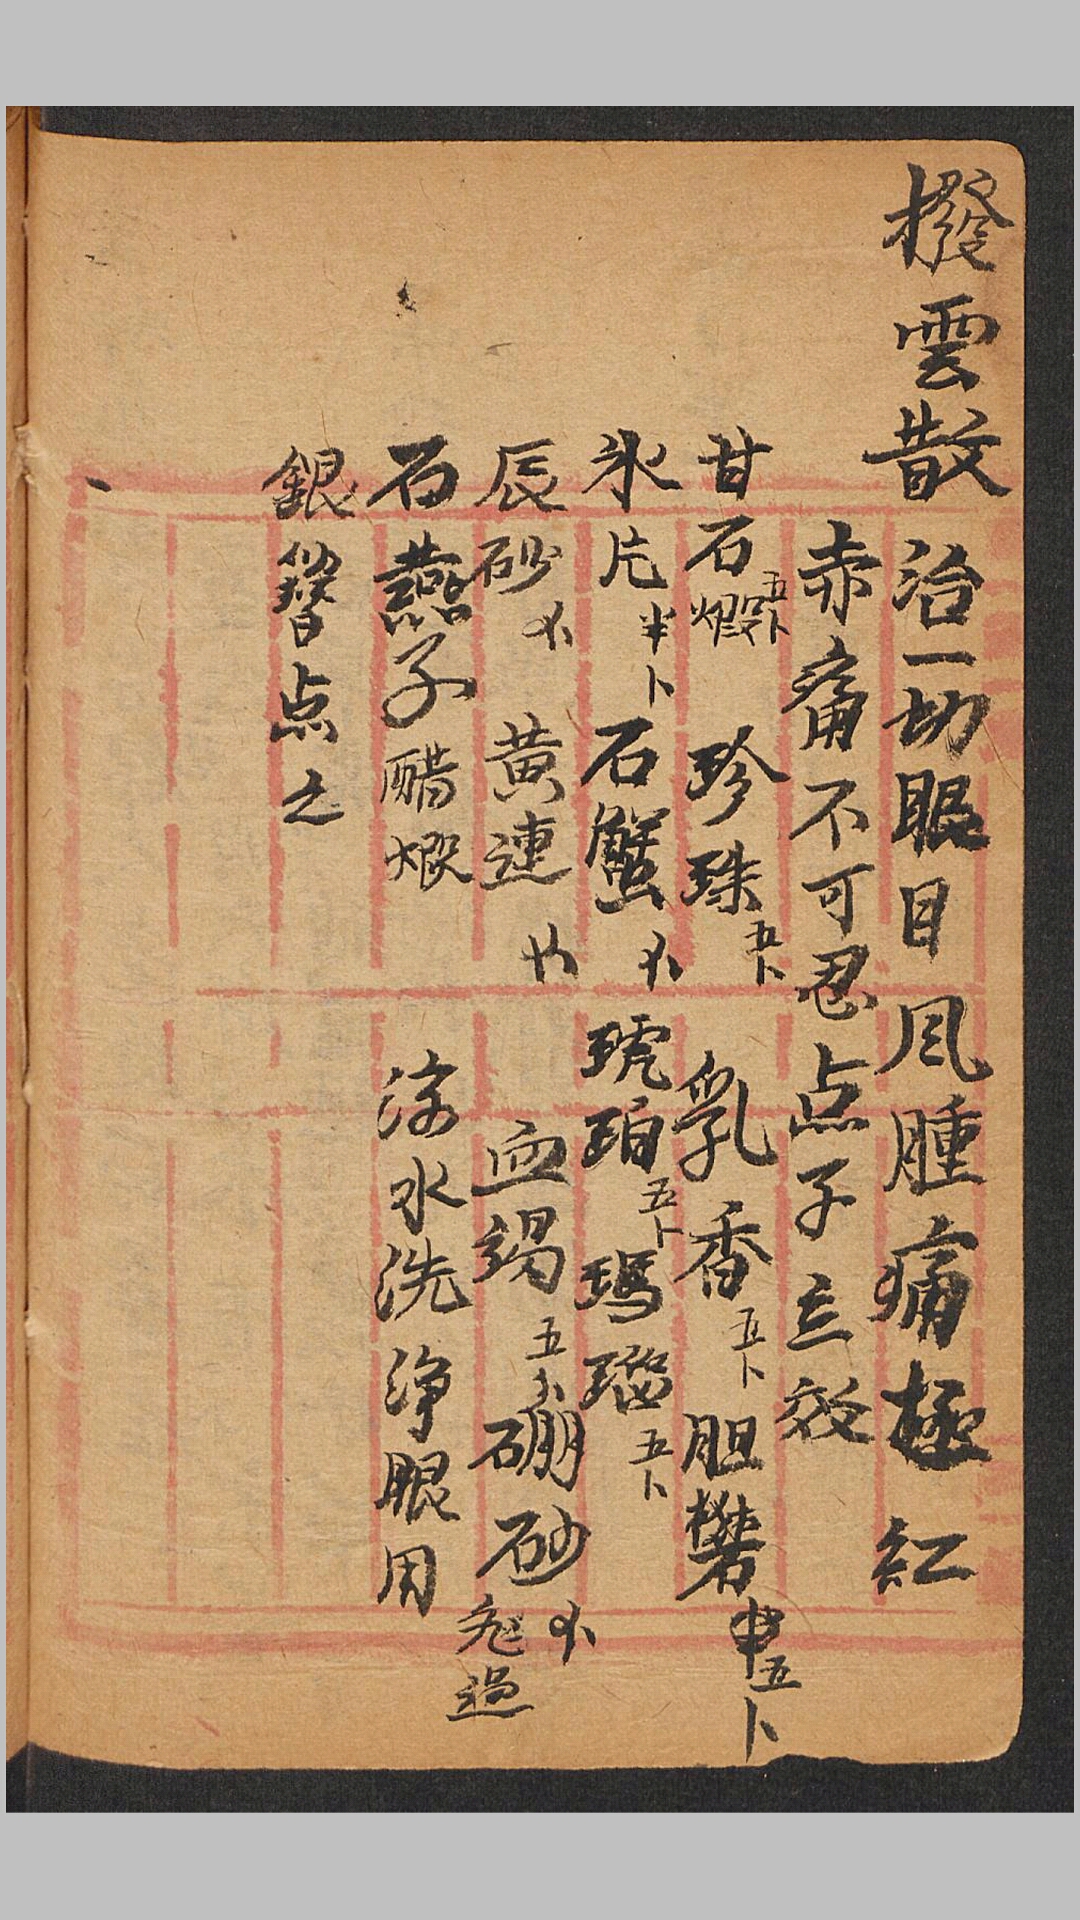 撥雲散治一切眼目風腫痛極紅
赤痛不可忍点子立效
甘石煅五卜珍珠五卜乳香五卜胆礬五卜
氷片半卜石蟹琥珀五卜瑪瑙五卜
辰砂黄連血竭五硼砂過
石燕子醋煅涼水洗淨眼用
銀簪点之